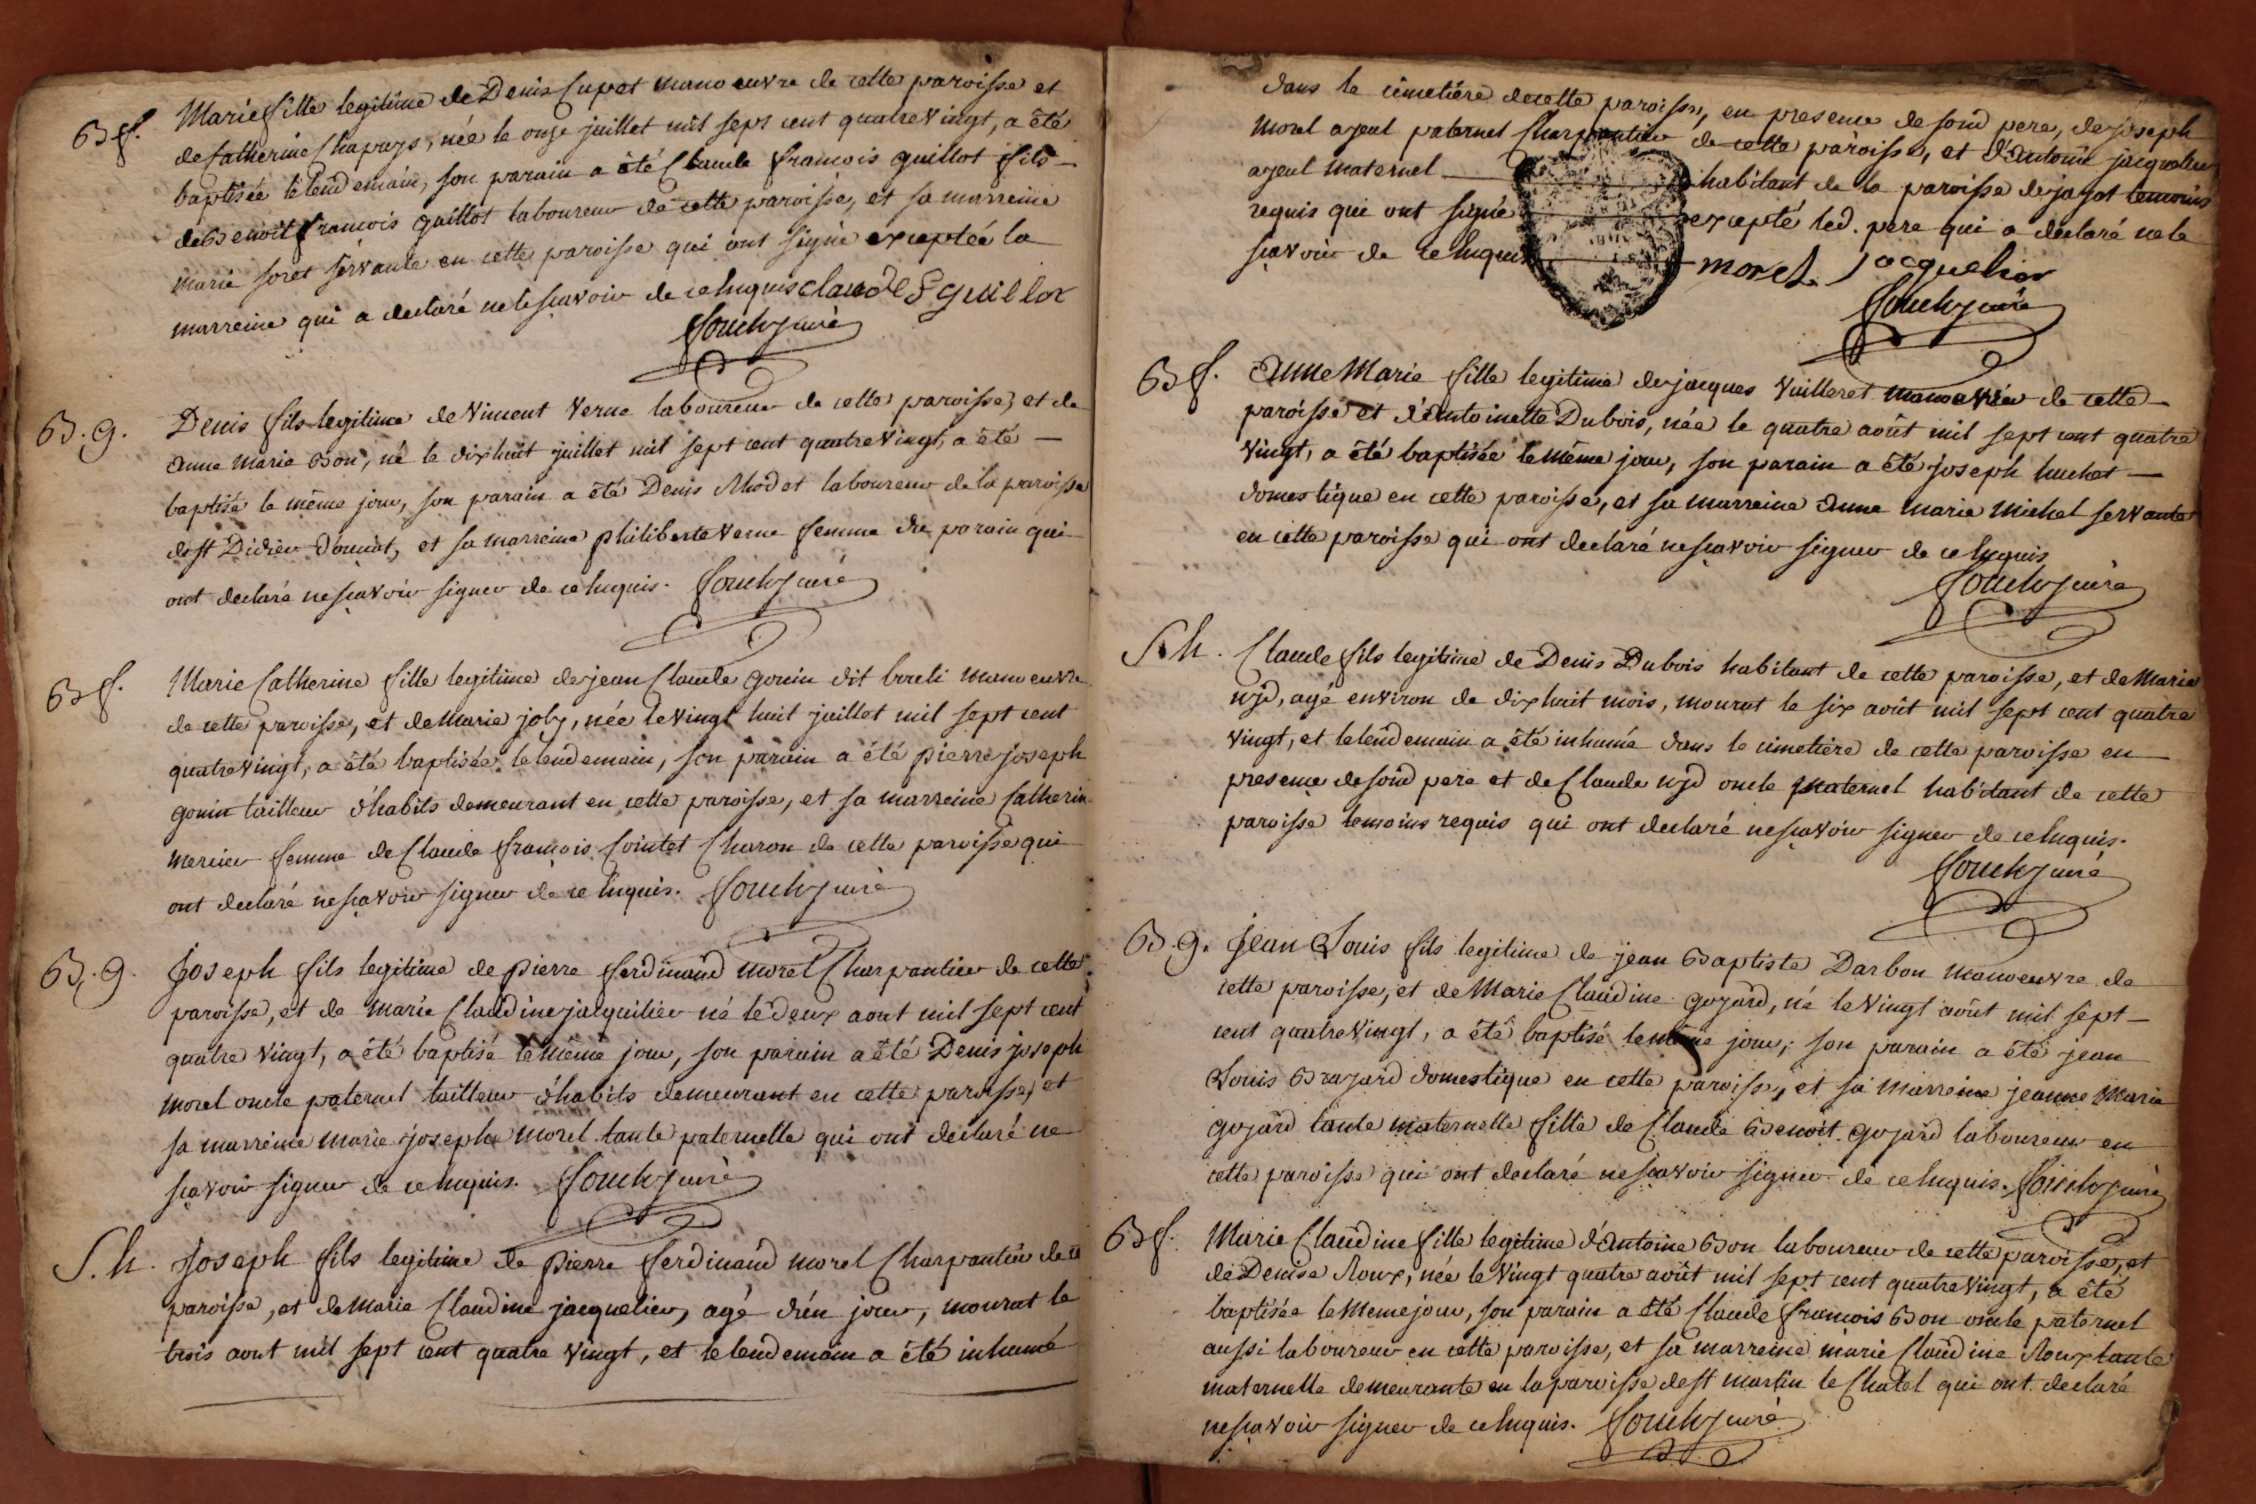 B f. Marie fille legitime de Denis Cupet manoeuvre de cette paroisse et
de Catherine Chapuys, née le onze juillet mil sept cent quatre vingt, a été
baptisée le lendemain, son parain a été Claude francois guillot fils
de Benoit francois guillot laboureur de cette paroisse, et sa marreine
marie foret servante en cette paroisse qui ont signé exceptée la
marreine qui a declaré ne le scavoir de ce enquis claude F guillot
curé
B. g. Denis fils legitime de Vincent Verne laboureur de cette paroisse, et de
anne marie Bon, né le dixhuit juillet mil sept cent quatre vingt, a été
baptisé le même jour, son parain a été Denis laboureur de la paroisse
de st Didier d'aussiat, et sa marreine philiberte Verne femme du parain qui
ont declaré ne scavoir signer de ce enquis. curé
B f. Marie Catherine fille legitime de jean Claude gonin dit manoeuvre
de cette paroisse, et de Marie joly, née le vingt huit juillet mil sept cent
quatre vingt, a été baptisée le lendemain, son parain a été pierre joseph
gonin tailleur d'habits demeurant en cette paroisse, et sa marreine Catherine
mercier femme de Claude francois Cointet Charon de cette paroisse qui
ont declaré ne scavoir signer de ce enquis. curé
B. g. Joseph fils legitime de pierre ferdinand morel Charpantier de cette
paroisse, et de marie Claudine jacquilier né le deux aout mil sept cent
quatre vingt, a été baptisé le même jour, son parain a été Denis joseph
morel oncle paternel tailleur d'habits demeurant en cette paroisse, et
sa marreine marie josephe morel tante paternelle qui ont declaré ne
scavoir signer de ce enquis. curé
S. h. Joseph fils legitime de pierre ferdinand morel Charpantier de ce
paroisse, et de marie Claudine jacquelier, agé d'un jour, mourut le
trois aout mil sept cent quatre vingt, et le lendemain a été inhumé
dans le cimetière de cette paroisse, en presence de soud pere, de joseph
morel ayeul paternel Charpantier de cette paroisse, et d'antoine jacquelier
ayeul maternel habitant de la paroisse de jayat temoins
requis qui ont signé excepté led. pere qui a declaré ne le
scavoir de ce enquis morel jacquelier
curé
B f. Anne Marie fille legitime de jacques Vuilleret manoeuvre de cette
paroisse et d'antoinette Dubois, née le quatre août mil sept cent quatre
vingt, a été baptisée le même jour, son parain a été joseph huchet
domestique en cette paroisse, et sa marreine anne marie michel servante
en cette paroisse qui ont declaré ne scavoir signer de ce enquis
curé
S. h. Claude fils legitime de Denis Dubois habitant de cette paroisse, et de Marie
agé environ de dixhuit mois, mourut le six août mil sept cent quatre
vingt, et le lendemain a été inhumé dans le cimetière de cette paroisse en
presence de soud pere et de Claude oncle maternel habitant de cette
paroisse temoins requis qui ont declaré ne scavoir signer de ce enquis.
curé
B. g. Jean Louis fils legitime de jean Baptiste Darbon manoeuvre de
cette paroisse, et de Marie Claudine goyard, né le vingt août mil sept
cent quatre vingt, a été baptisé le même jour, son parain a été jean
Louis Brayard domestique en cette paroisse, et sa marreine jeanne marie
goyard tante maternelle fille de Claude Benoit goyard laboureur en
cette paroisse qui ont declaré ne scavoir signer de ce enquis. curé
B f. Marie Claudine fille legitime d'antoine Bon laboureur de cette paroisse, et
de Denise Roux, née le vingt quatre août mil sept cent quatre vingt, a été
baptisée le meme jour, son parain a été Claude francois Bon oncle paternel
aussi laboureur en cette paroisse, et sa marreine marie Claudine Roux tante
maternelle demeurante en la paroisse de st martin le Chatel qui ont declaré
ne scavoir signer de ce enquis. curé